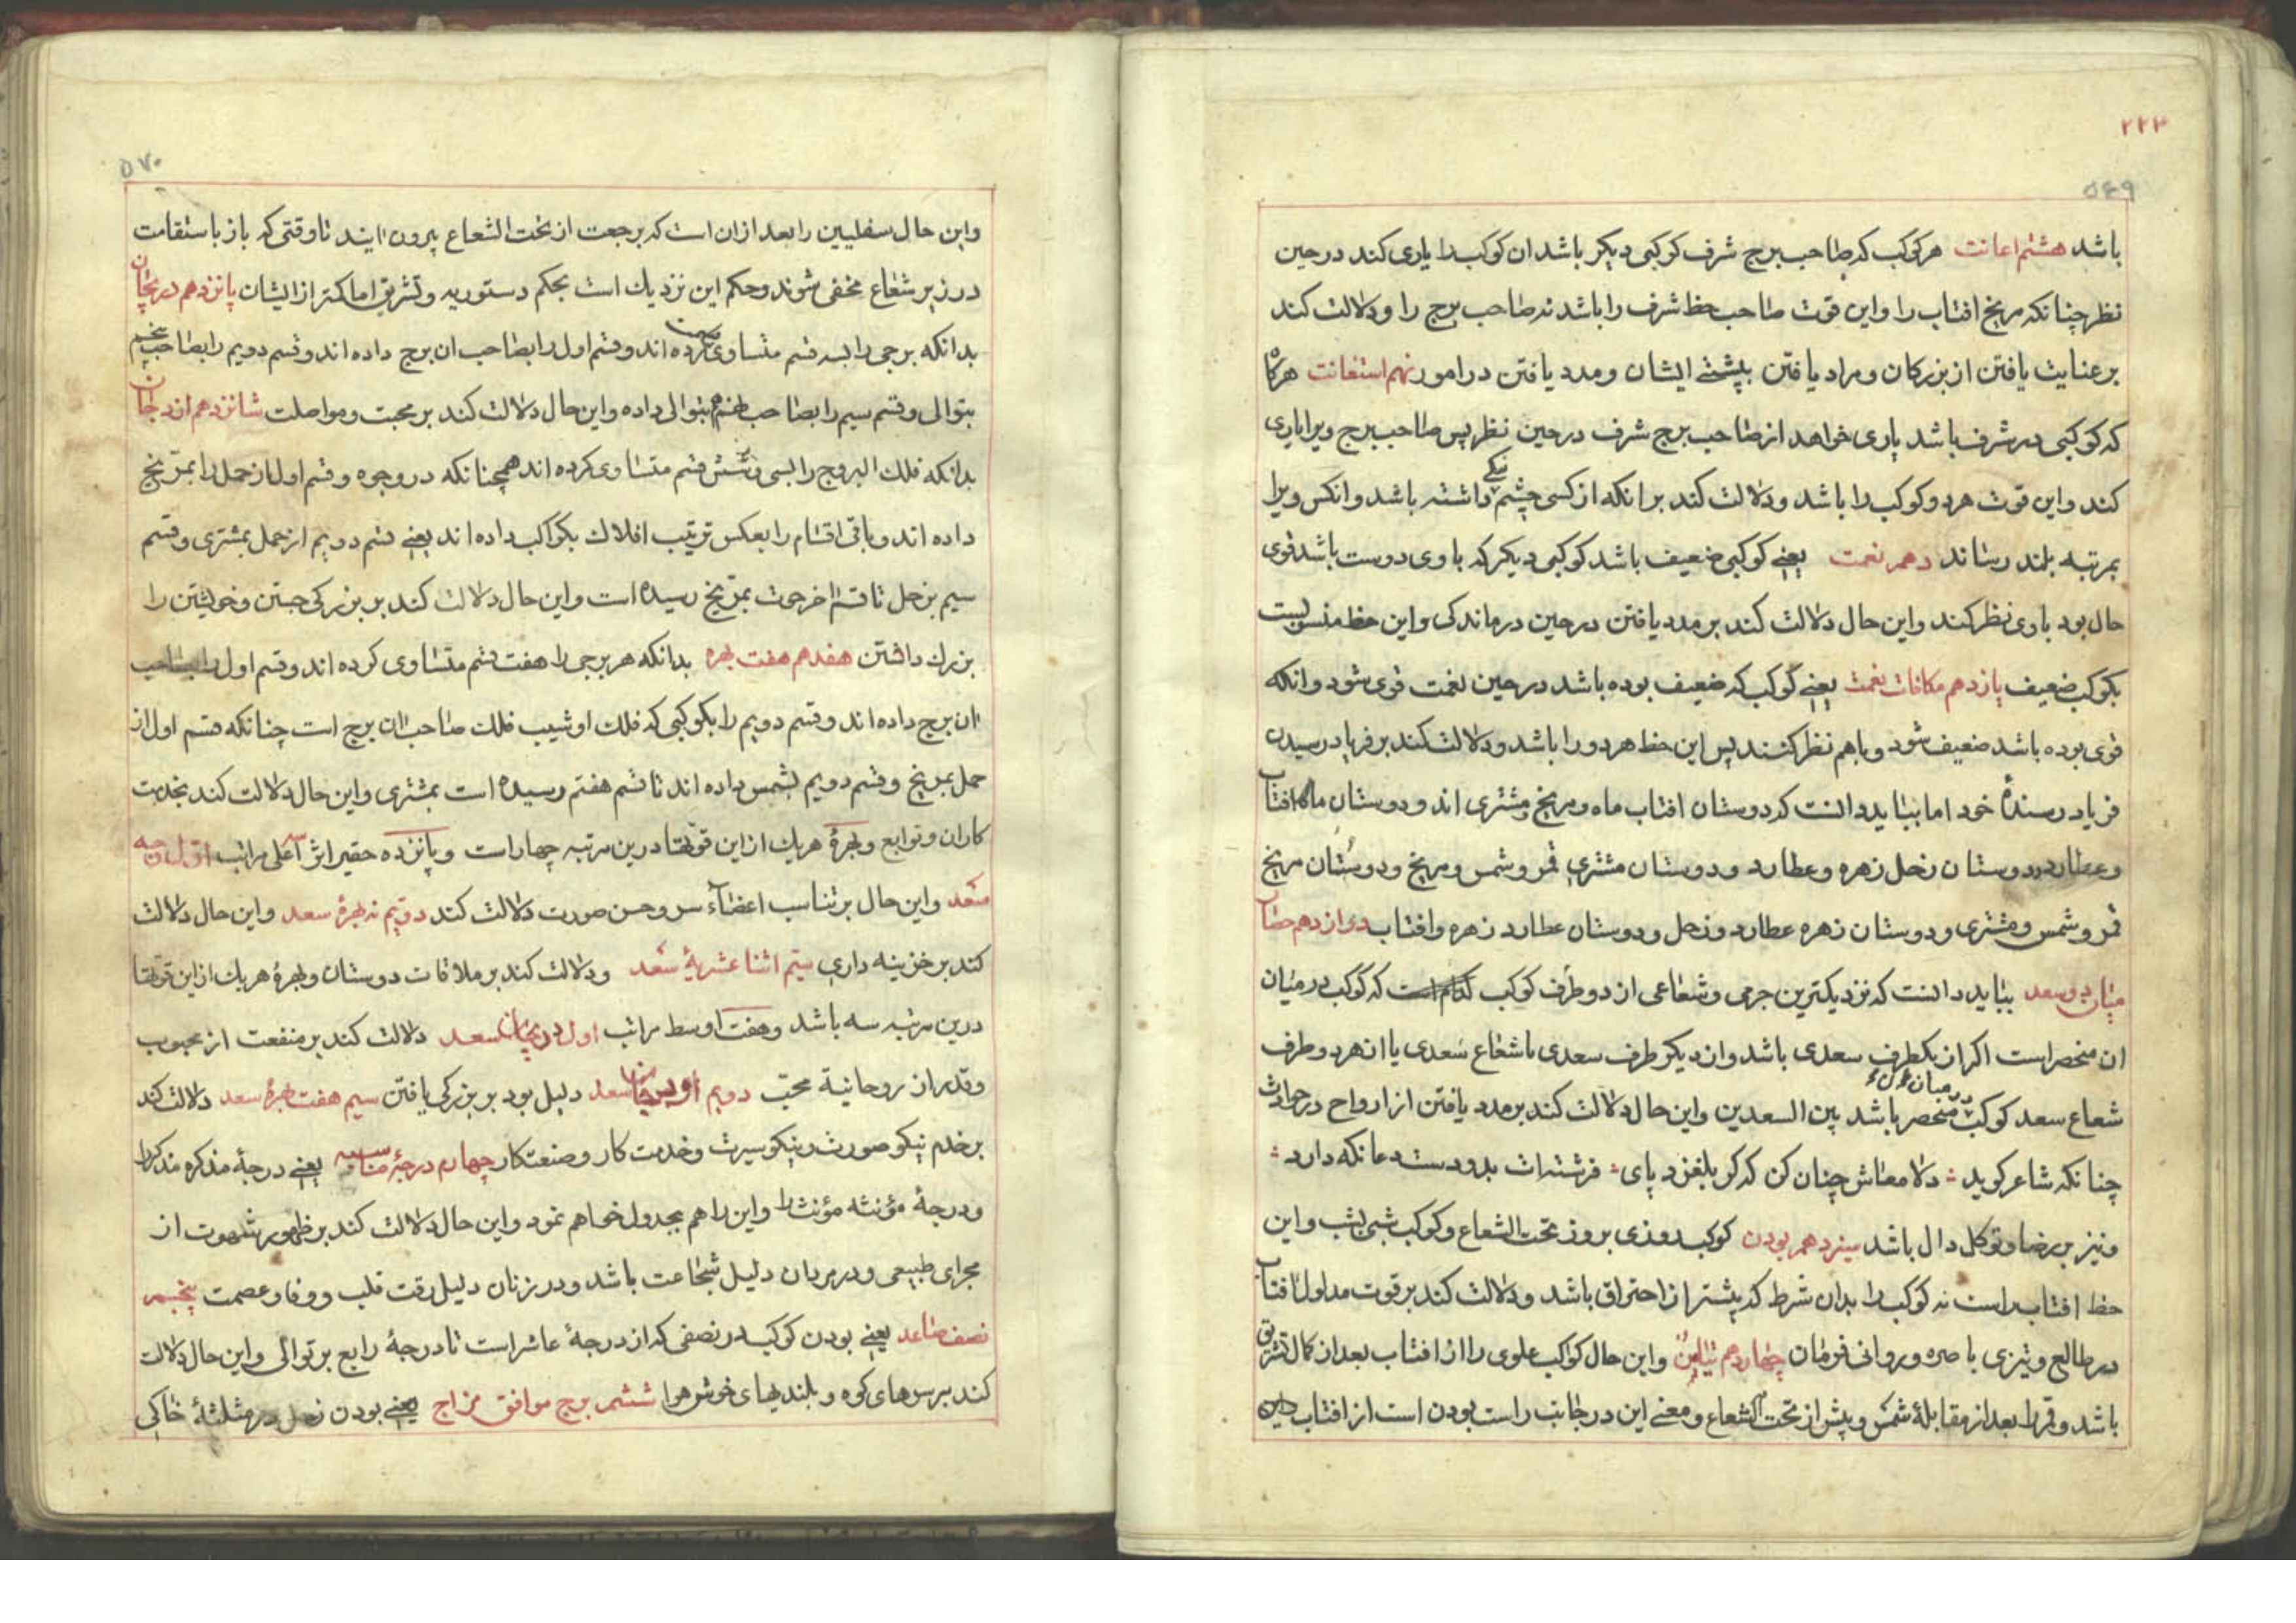 ۲۲۳
۵۶۹
باشد هشتم اعانت هر کوکب که صاحب برج شرف کوکبی دیکر باشد ان کوکب را یاری کند در حین
نظر چنانکه مریخ افتاب را و این قوت صاحب حظ شرف را باشد نه صاحب برج را و دلالت کند
بر عنایت یافتن از بزرکان و مراد یافتن بپشتی ایشان و مدد یافتن در امور نهم استعانت هرکاه
که کوکبی در شرف باشد یاری خواهد از صاحب برج شرف در حین نظر پس صاحب برج ویرا یاری
کند و این قوت هر دو کوکب را باشد و دلالت کند بر انکه از کسی چشم نیکی داشته باشد و انکس ویرا
بمرتبه بلند رساند دهم نعمت یعنی کوکبی ضعیف باشد کوکبی دیکر که با وی دوست باشد قوی
حال بود با وی نظر کند و این حال دلالت کند بر مدد یافتن در حین درماندکی و این حظ منسوبست
بکوکب ضعیف یازدهم مکافات نعمت یعنی کوکب که ضعیف بوده باشد در حین نعمت قوی شود و انکه
قوی بوده باشد ضعیف شود و با هم نظر کنند پس این حظ هر دو را باشد و دلالت کند بر فریاد رسیدن
فریاد رسندهٔ خود اما بباید دانست که دوستان افتاب ماه و مریخ و مشتری اند و دوستان ماه افتاب
و عطارد و دوستان زحل زهره و عطارد و دوستان مشتری قمر و شمس و مریخ و دوستان مریخ
قمر و شمس و مشتری و دوستان زهره عطارد و زحل و دوستان عطارد زهره و افتاب دوازدهم حصار
میان دو سعد بباید دانست که نزدیکترین جرمی و شعاعی از دو طرف کوکب کدام است که کوکب در میان
ان منحصر است اکر از یکطرف سعدی باشد و از دیکر طرف سعدی یا شعاع سعدی یا از هر دو طرف
شعاع سعد کوکب در میان منحصر باشد بین السعدین و این حال دلالت کند بر مدد یافتن از ارواح در حوادث
چنانکه شاعر کوید دلا معاش چنان کن که کر بلغزد پای فرشته‌ات بدو دست دعا نکه دارد
و نیز بر رضا و توکل دال باشد سیزدهم بودن کوکب روزی بروز تحت الشعاع و کوکب شبی بشب و این
حظ افتاب راست نه کوکب را بدان شرط که پیشتر از احتراق باشد و دلالت کند بر قوت مداول افتاب
در طالع و تیزی باصره و روانی فرمان چهاردهم تیامن و این حال کواکب علوی را از افتاب بعد از کمال تشریق
باشد و قمر را بعد از مقابلهٔ شمس و پیش از تحت الشعاع و معنی این در جانب راست بودن است از افتاب
۵۷۰
و این حال سفلیین را بعد از ان است که برجعت از تحت الشعاع بیرون ایند تا وقتی که باز باستقامت
در زیر شعاع مخفی شوند و حکم این نزدیک است بحکم دستوریه و تشریق اما کمتر از ایشان پانزدهم دریجان
بدانکه برجی را بسه قسم متساوی قسمت کرده اند و قسم اول را بصاحب ان برج داده اند و قسم دویم را بصاحب پنجم
بتوالی و قسم سیم را بصاحب نهم بتوالی داده و این حال دلالت کند بر محبت و مواصلت شانزدهم ازرجان
بدانکه فلک البروج را بسی و شش قسم متساوی کرده اند همچنانکه در وجوه و قسم اول از حمل را بمریخ
داده اند و باقی اقسام را بعکس ترتیب افلاک بکواکب داده اند یعنی قسم دویم از حمل بمشتری و قسم
سیم بزحل تا قسم اخر حوت بمریخ رسیده است و این حال دلالت کند بر بزرکی جستن و خویشتن را
بزرک داشتن هفدهم هفت بهره بدانکه هر برجی را هفت قسم متساوی کرده اند و قسم اول را بصاحب
ان برج داده اند و قسم دویم را بکوکبی که فلک او شیب فلک صاحب ان برج است چنانکه قسم اول از
حمل بمریخ و قسم دویم بشمس داده اند تا قسم هفتم رسیده است بمشتری و این حال دلالت کند بخدمت
کاران و توابع و بهرهٔ هر یک از این قوتها درین مرتبه چهار است و پانزده حقیر اثر سه اعلی مراتب اول وجه
سعد و این حال بر تناسب اعضاء سر و حسن صورت دلالت کند دویم نه بهرهٔ سعد و این حال دلالت
کند بر خزینه داری سیم اثنا عشریهٔ سعد و دلالت کند بر ملاقات دوستان و بهرهٔ هر یک از این قوتها
درین مرتبه سه باشد و هفت اوسط مراتب اول دریجان سعد دلالت کند بر منفعت از محبوب
و قدر از روحانیة محبت دویم ازرجان سعد دلیل بود بر بزرکی یافتن سیم هفت بهرهٔ سعد دلالت کند
بر خدم نیکو صورت و نیکو سیرت و خدمت کار و صنعتکار چهارم درجهٔ مناسبه یعنی درجهٔ مذکره مذکر را
و درجهٔ مؤنثه مؤنث را و این را هم بجدول خواهم نمود و این حال دلالت کند بر ظهور شهوت از
مجرای طبیعی و در مردان دلیل شجاعت باشد و در زنان دلیل رقت قلب و وفا و عصمت پنجم
نصف صاعد یعنی بودن کوکب در نصفی که از درجهٔ عاشر است تا درجهٔ رابع بر توالی و این حال دلالت
کند بر سرهای کوه و بلندیهای خوش هوا ششم برج موافق مزاج یعنی بودن زحل در مثلثهٔ خاکی